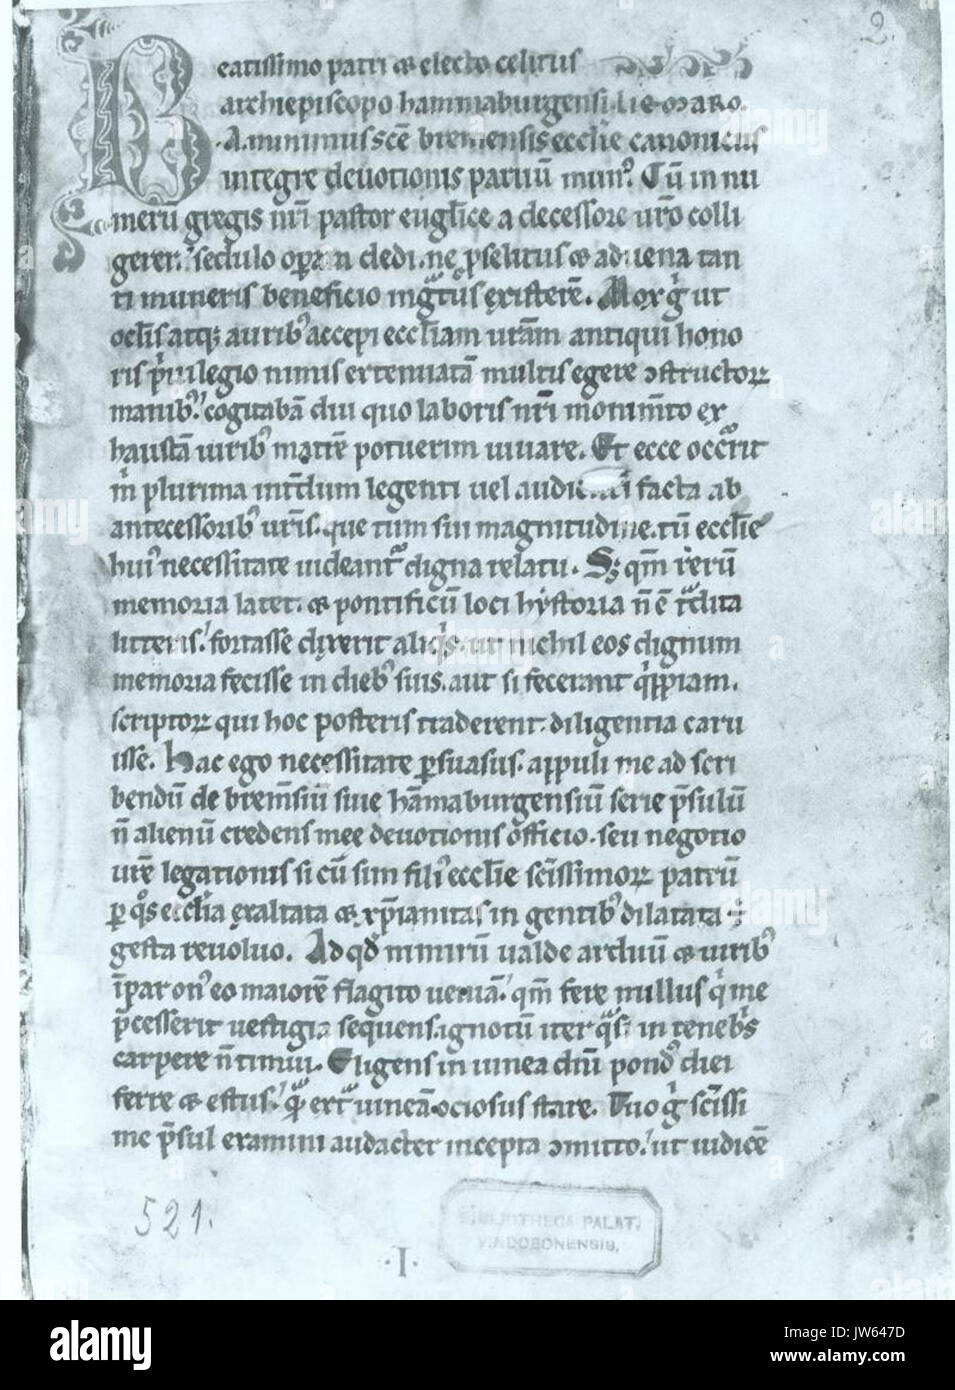 2.
Beatissimo patri & electo celitus
archiepiscopo hammaburgensi. lie
.A. minimus scē bremensis ecclīe canonicus
integrę deuotionis paruū mun9. Cū in nu
merū gregis nr̄i pastor euglīce a decessore ur̄o colli
gerer. sedulo operam dedi. ne proselitus & aduena tan
ti muneris beneficio ingratus exister̄e. Mox g̊ ut
ocl̄is atq; aurib9 accepi eccl̄iam ur̄am antiqui hono
ris p̊uilegio nimis extenuatā multis egere ɔstructoꝝ
manib9. cogitabā diu quo laboris nr̄i monim̄to ex
haustā uirib9 matrē potuerim iuuare. Et ecce occ̊rit
m̊ plurima int̄dum legenti uel audienti facta ab
antecessorib9 ur̄is. que tum sui magnitudine. tū eccl̄ie
hui9 necessitate uideant̊ digna relatu. S; qm̄ rerū
memoria latet. & pontificū loci hystoria n̄ ē t̊dita
litteris. fortasse dixerit aliq̊s. ut nichil eos dignum
memoria fecisse in dieb9 suis. aut si fecerant q̊ppiam.
scriptoꝝ qui hoc posteris traderent. diligentia caru
isse. Hac ego necessitate ꝑsuasus. appuli me ad scri
bendū de brem̄siū siue hāmaburgensiū serie p̄sulū
n̄ alienū credens meę deuotionis officio. seu negotio
ur̄e legationis si cū sim fili9 eccl̄ie sc̄issimoꝝ patrū
ꝑ q̊s eccl̄ia exaltata & xp̄ianitas in gentib9 dilatata ÷
gesta reuoluo. Ad qd̄ nimirū ualde arduū & uirib9
īpar on9 eo maiorē flagito ueniā. qm̄ fere nullus q̊ me
p̄cesserit uestigia sequens. ignotū iter q̊si in teneb̊s
carpere n̄ timui. Eligens in uinea dn̄i pond9 diei
ferre & estus. q̊m ext̊ uineā. ociosus stare. Tuo g̊ sc̄issi
me p̄sul examini audacter incepta ɔmitto. ut iudicē
521.
.I.
BIBLIOTHECA PALAT.
VINDOBONENSIS.
alamy
Image ID: JW647D
www.alamy.com